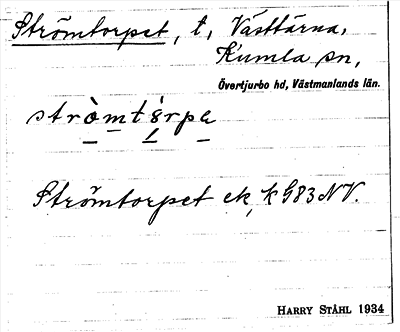 Strömtorpet, t, Västtärna,
Kumla sn,
Övertjurbo hd, Västmanlands län.
stròmtórpa
Strömtorpet ek, k G83 NV.
HARRY STÅHL 1934